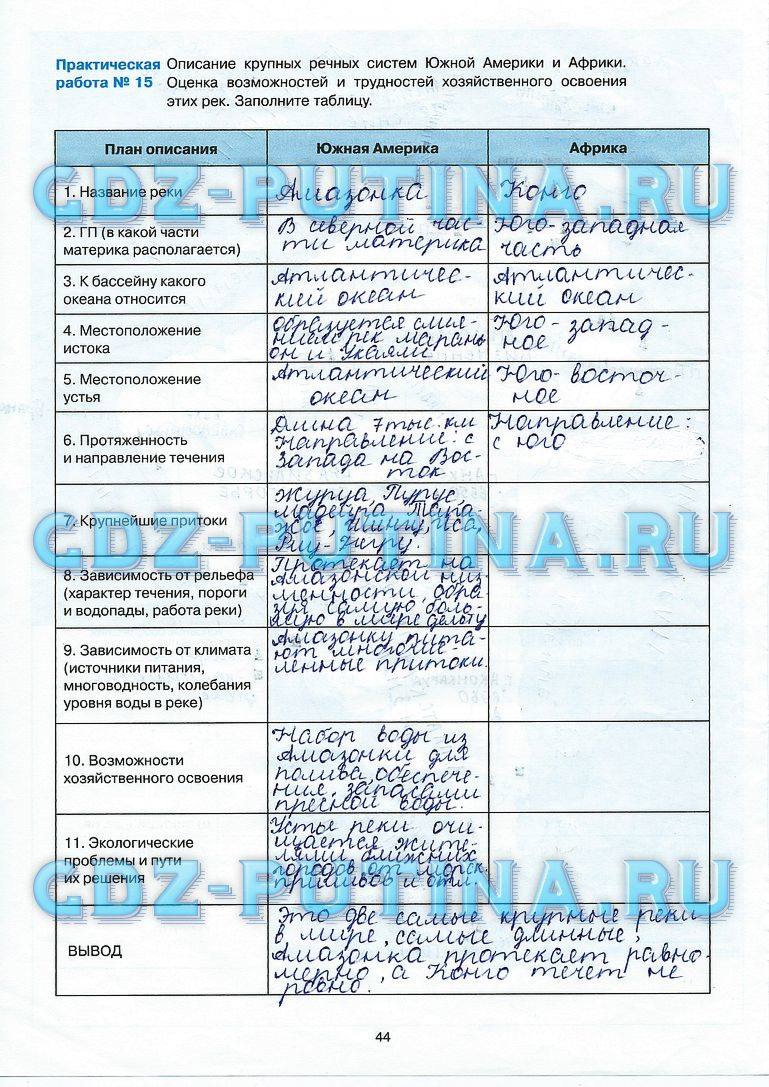 Практическая работа № 15
Описание крупных речных систем Южной Америки и Африки.
Оценка возможностей и трудностей хозяйственного освоения
этих рек. Заполните таблицу.
План описания
Южная Америка
Африка
GDZ-PUTINA.RU
1. Название реки
Амазонка
Конго
2. ГП (в какой части
материка располагается)
В северной час-
ти материка
Юго-западная
часть
3. К бассейну какого
океана относится
Атлантичес-
кий океан
Атлантичес-
кий океан
4. Местоположение
истока
Образуется слия-
нием рек Марань
он и Укаяли
Юго-запад-
ное
5. Местоположение
устья
Атлантический
океан
Юго-восточ-
ное
6. Протяженность
и направление течения
Длина 7 тыс. км
Направление: с
Запада на Вос-
ток
Направление:
с юго
7. Крупнейшие притоки
Журуа, Пурус,
Мадейра, Тапа-
жос, Шингу, Иса,
Риу-Негру.
GDZ-PUTINA.RU
8. Зависимость от рельефа
(характер течения, пороги
и водопады, работа реки)
Протекает на
Амазонской низ-
менности, обра-
зуя самую боль-
шую в мире дельту
9. Зависимость от климата
(источники питания,
многоводность, колебания
уровня воды в реке)
Амазонку пита-
ют многочис-
ленные притоки.
10. Возможности
хозяйственного освоения
Набор воды из
Амазонки для
полива, обеспече-
ния запасами
пресной воды.
11. Экологические
проблемы и пути
их решения
Устье реки очи-
щается жите-
лями ближних
городов от морск.
приливов и отл.
GDZ-PUTINA.RU
ВЫВОД
Это две самые крупные реки
в мире, самые длинные,
Амазонка протекает равно-
мерно, а Конго течет не
ровно.
44